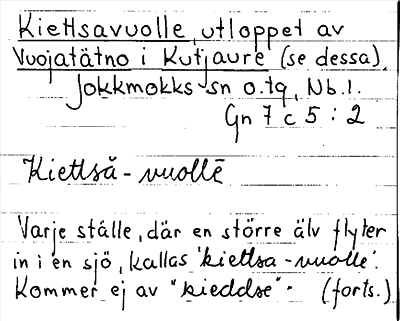 Kietlsavuolle, utloppet av
Vuojatätno i Kutjaure (se dessa).
Jokkmokks sn o. tg, Nb. l.
Gn 7 c 5 : 2
Kietlså - vuollē
Varje ställe, där en större älv flyter
in i en sjö, kallas 'kietlsa - vuolle'.
Kommer ej av "kieddse". (forts.)